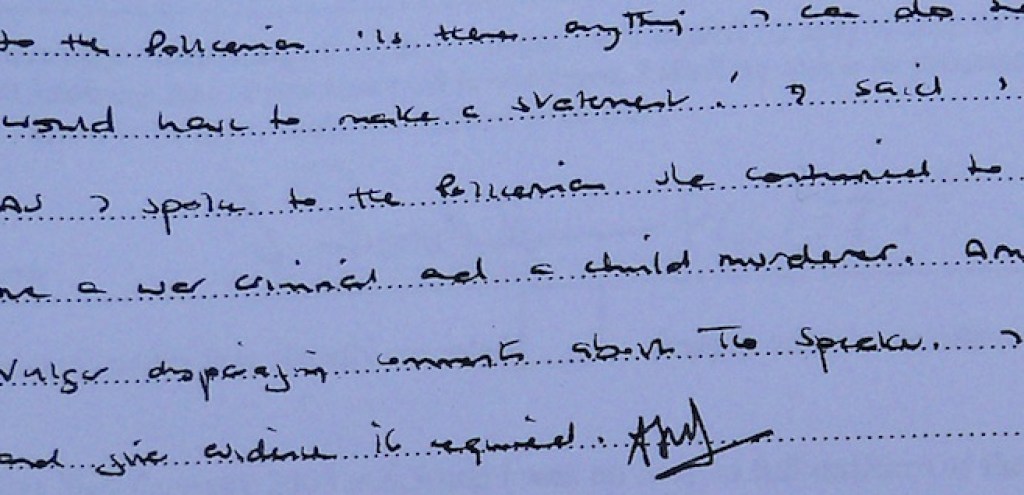 to the Policeman 'is there anything I can do
would have to make a statement.' I said I
As I spoke to the Policeman she continued to
me a war criminal and a child murderer.
vulgar disparaging comments about The Speaker. I
and give evidence if required.